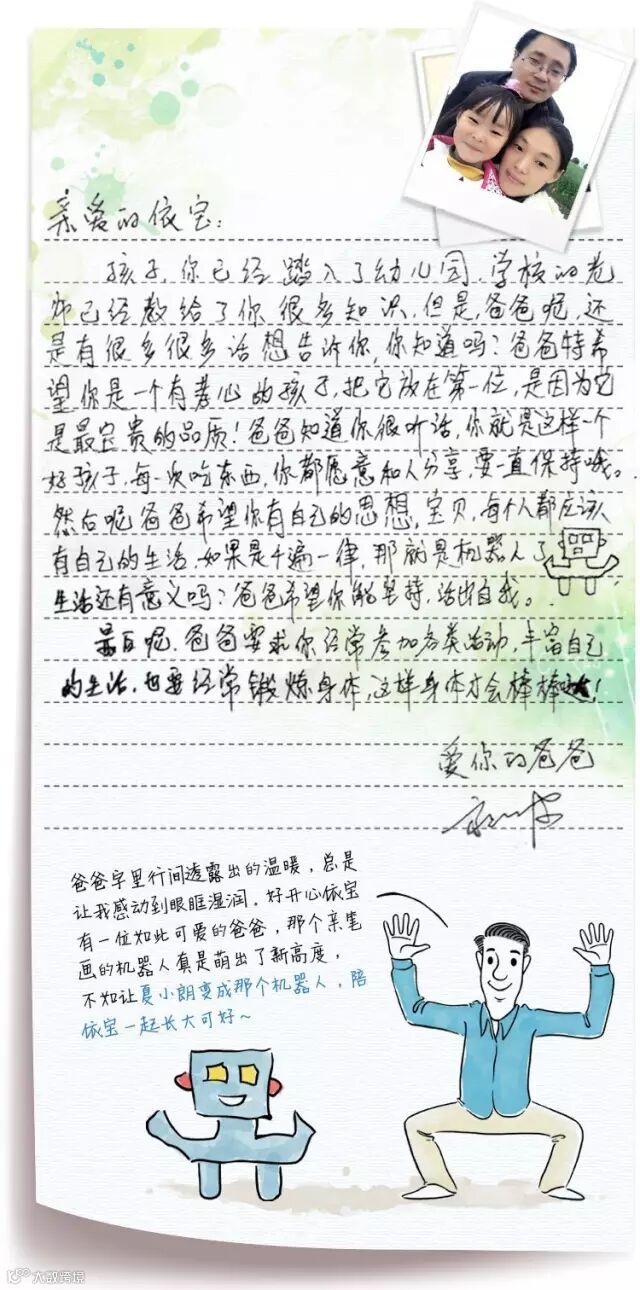 亲爱的依宝:
孩子,你已经踏入了幼儿园,学校的老
师已经教给了你很多知识,但是,爸爸呢,还
是有很多很多话想告诉你,你知道吗?爸爸特希
望你是一个有孝心的孩子,把它放在第一位,是因为它
是最宝贵的品质!爸爸知道你很听话,你就是这样一个
好孩子,每一次吃东西,你都愿意和人分享,要一直保持哦。
然后呢爸爸希望你有自己的思想,宝贝,每个人都应该
有自己的生活,如果是千遍一律,那就是机器人了
生活还有意义吗?爸爸希望你能坚持,活出自我。
最后呢,爸爸要求你经常参加各类活动,丰富自己
的生活,也要经常锻炼身体,这样身体才会棒棒哒!
爱你的爸爸
爸爸字里行间透露出的温暖,总是
让我感动到眼眶湿润。好开心依宝
有一位如此可爱的爸爸,那个亲笔
画的机器人真是萌出了新高度,
不如让夏小朗变成那个机器人,陪
依宝一起长大可好~
大数跨境